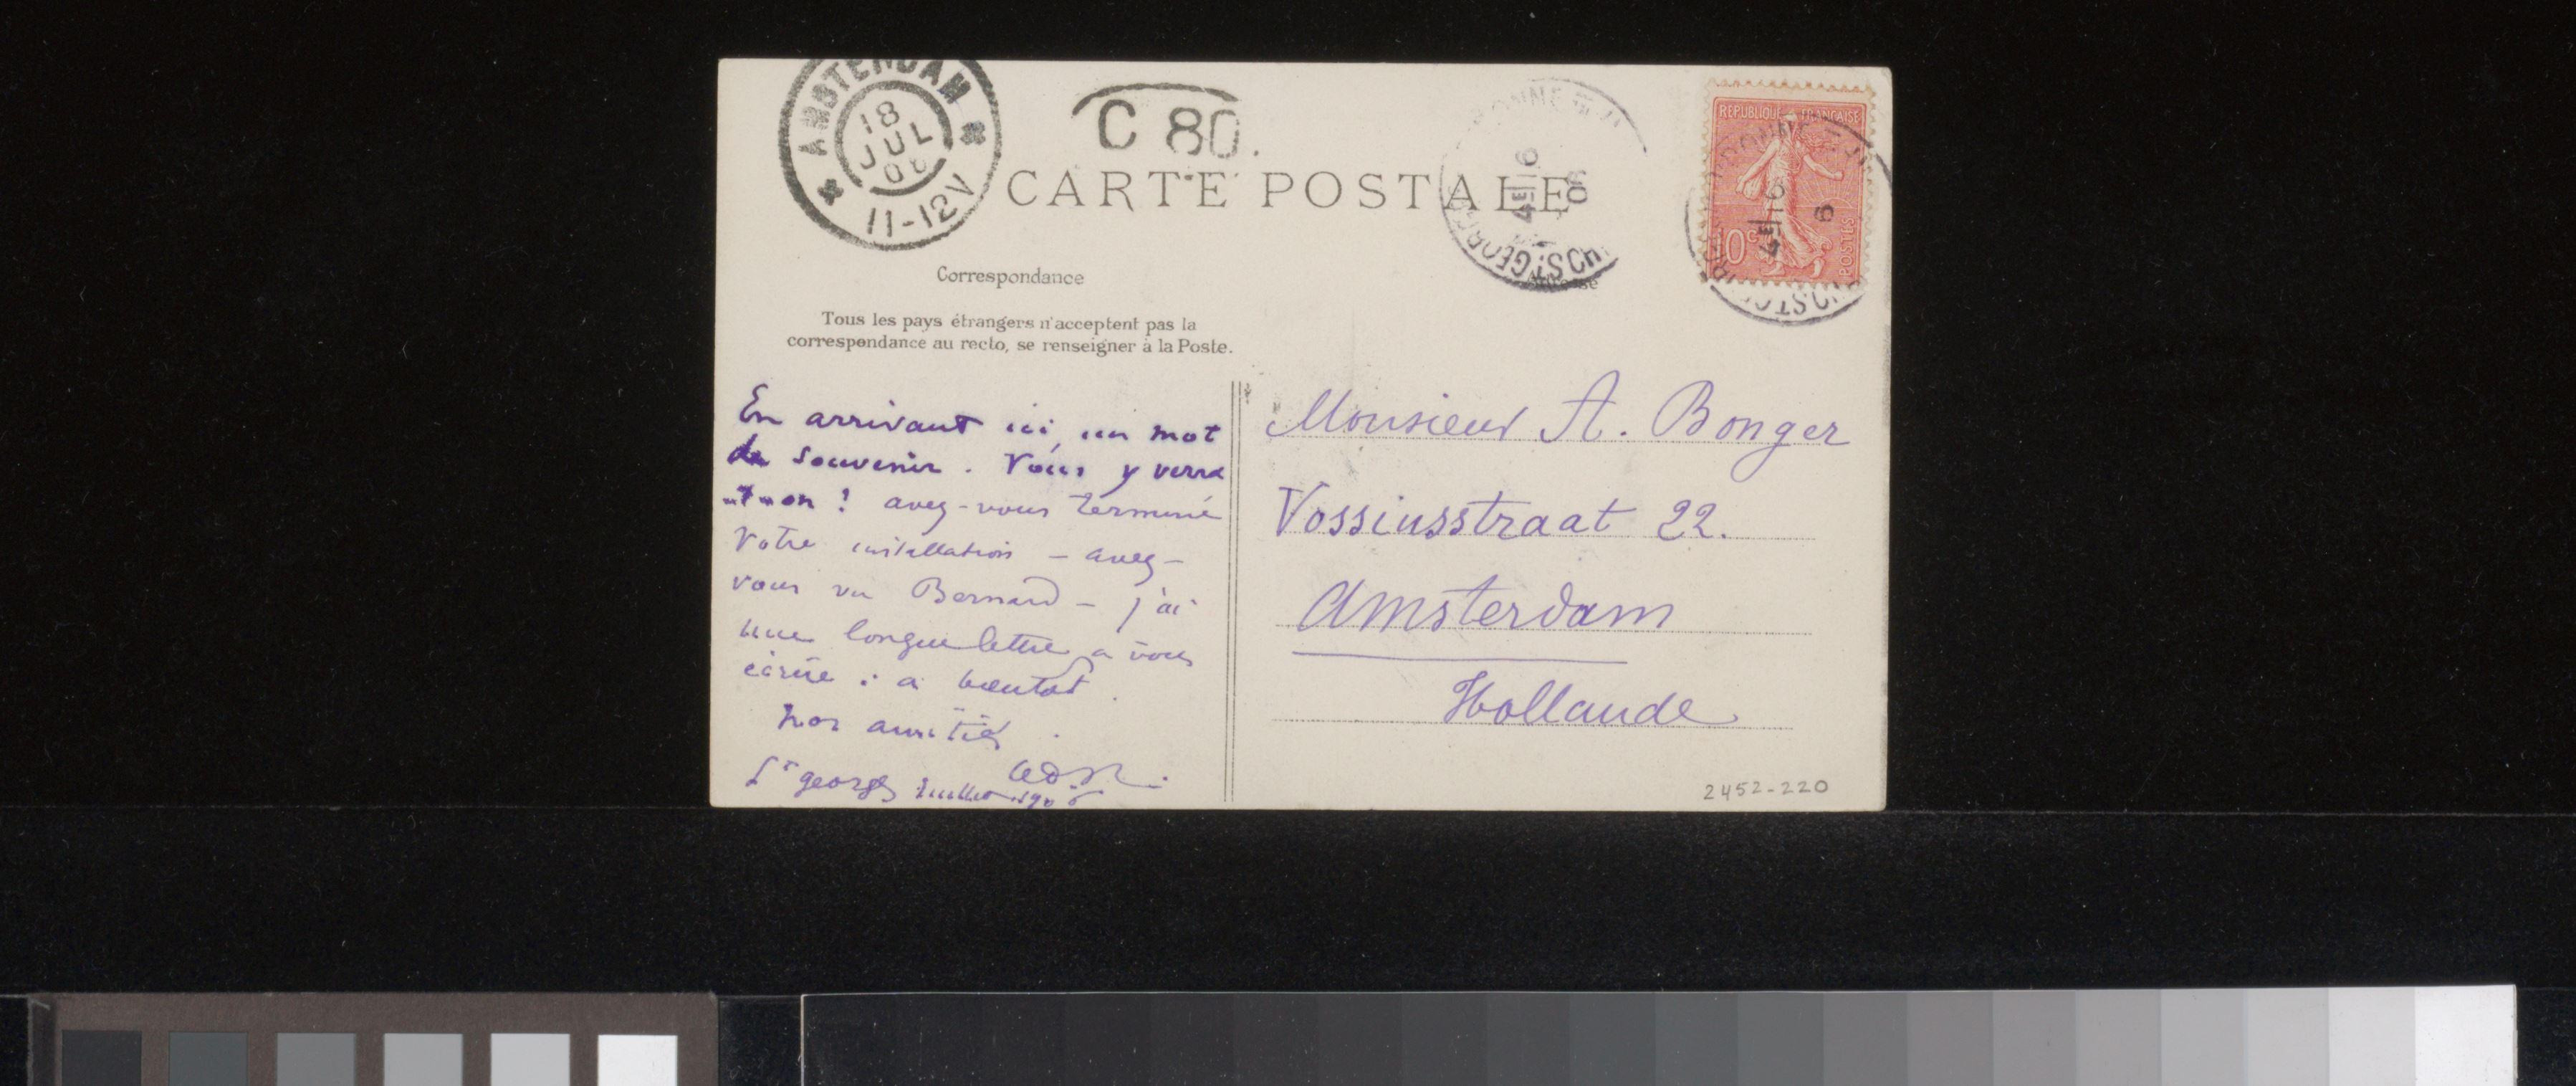 AMSTERDAM
18
JUL
06
11-12V
C 80.
CARTE POSTALE
Correspondance
Adresse
Tous les pays étrangers n'acceptent pas la
correspondance au recto, se renseigner à la Poste.
REPUBLIQUE FRANÇAISE
10c
POSTES
En arrivant ici, un mot
de souvenir. Vous y verra
-t-on ! avez-vous terminé
votre installation - avez-
vous vu Bernard - j'ai
une longue lettre a vous
écrire : a bientot.
nos amitiés.
St georges Juillet 1906
Monsieur A. Bonger
Vossiusstraat 22.
Amsterdam
Hollande
2452-220